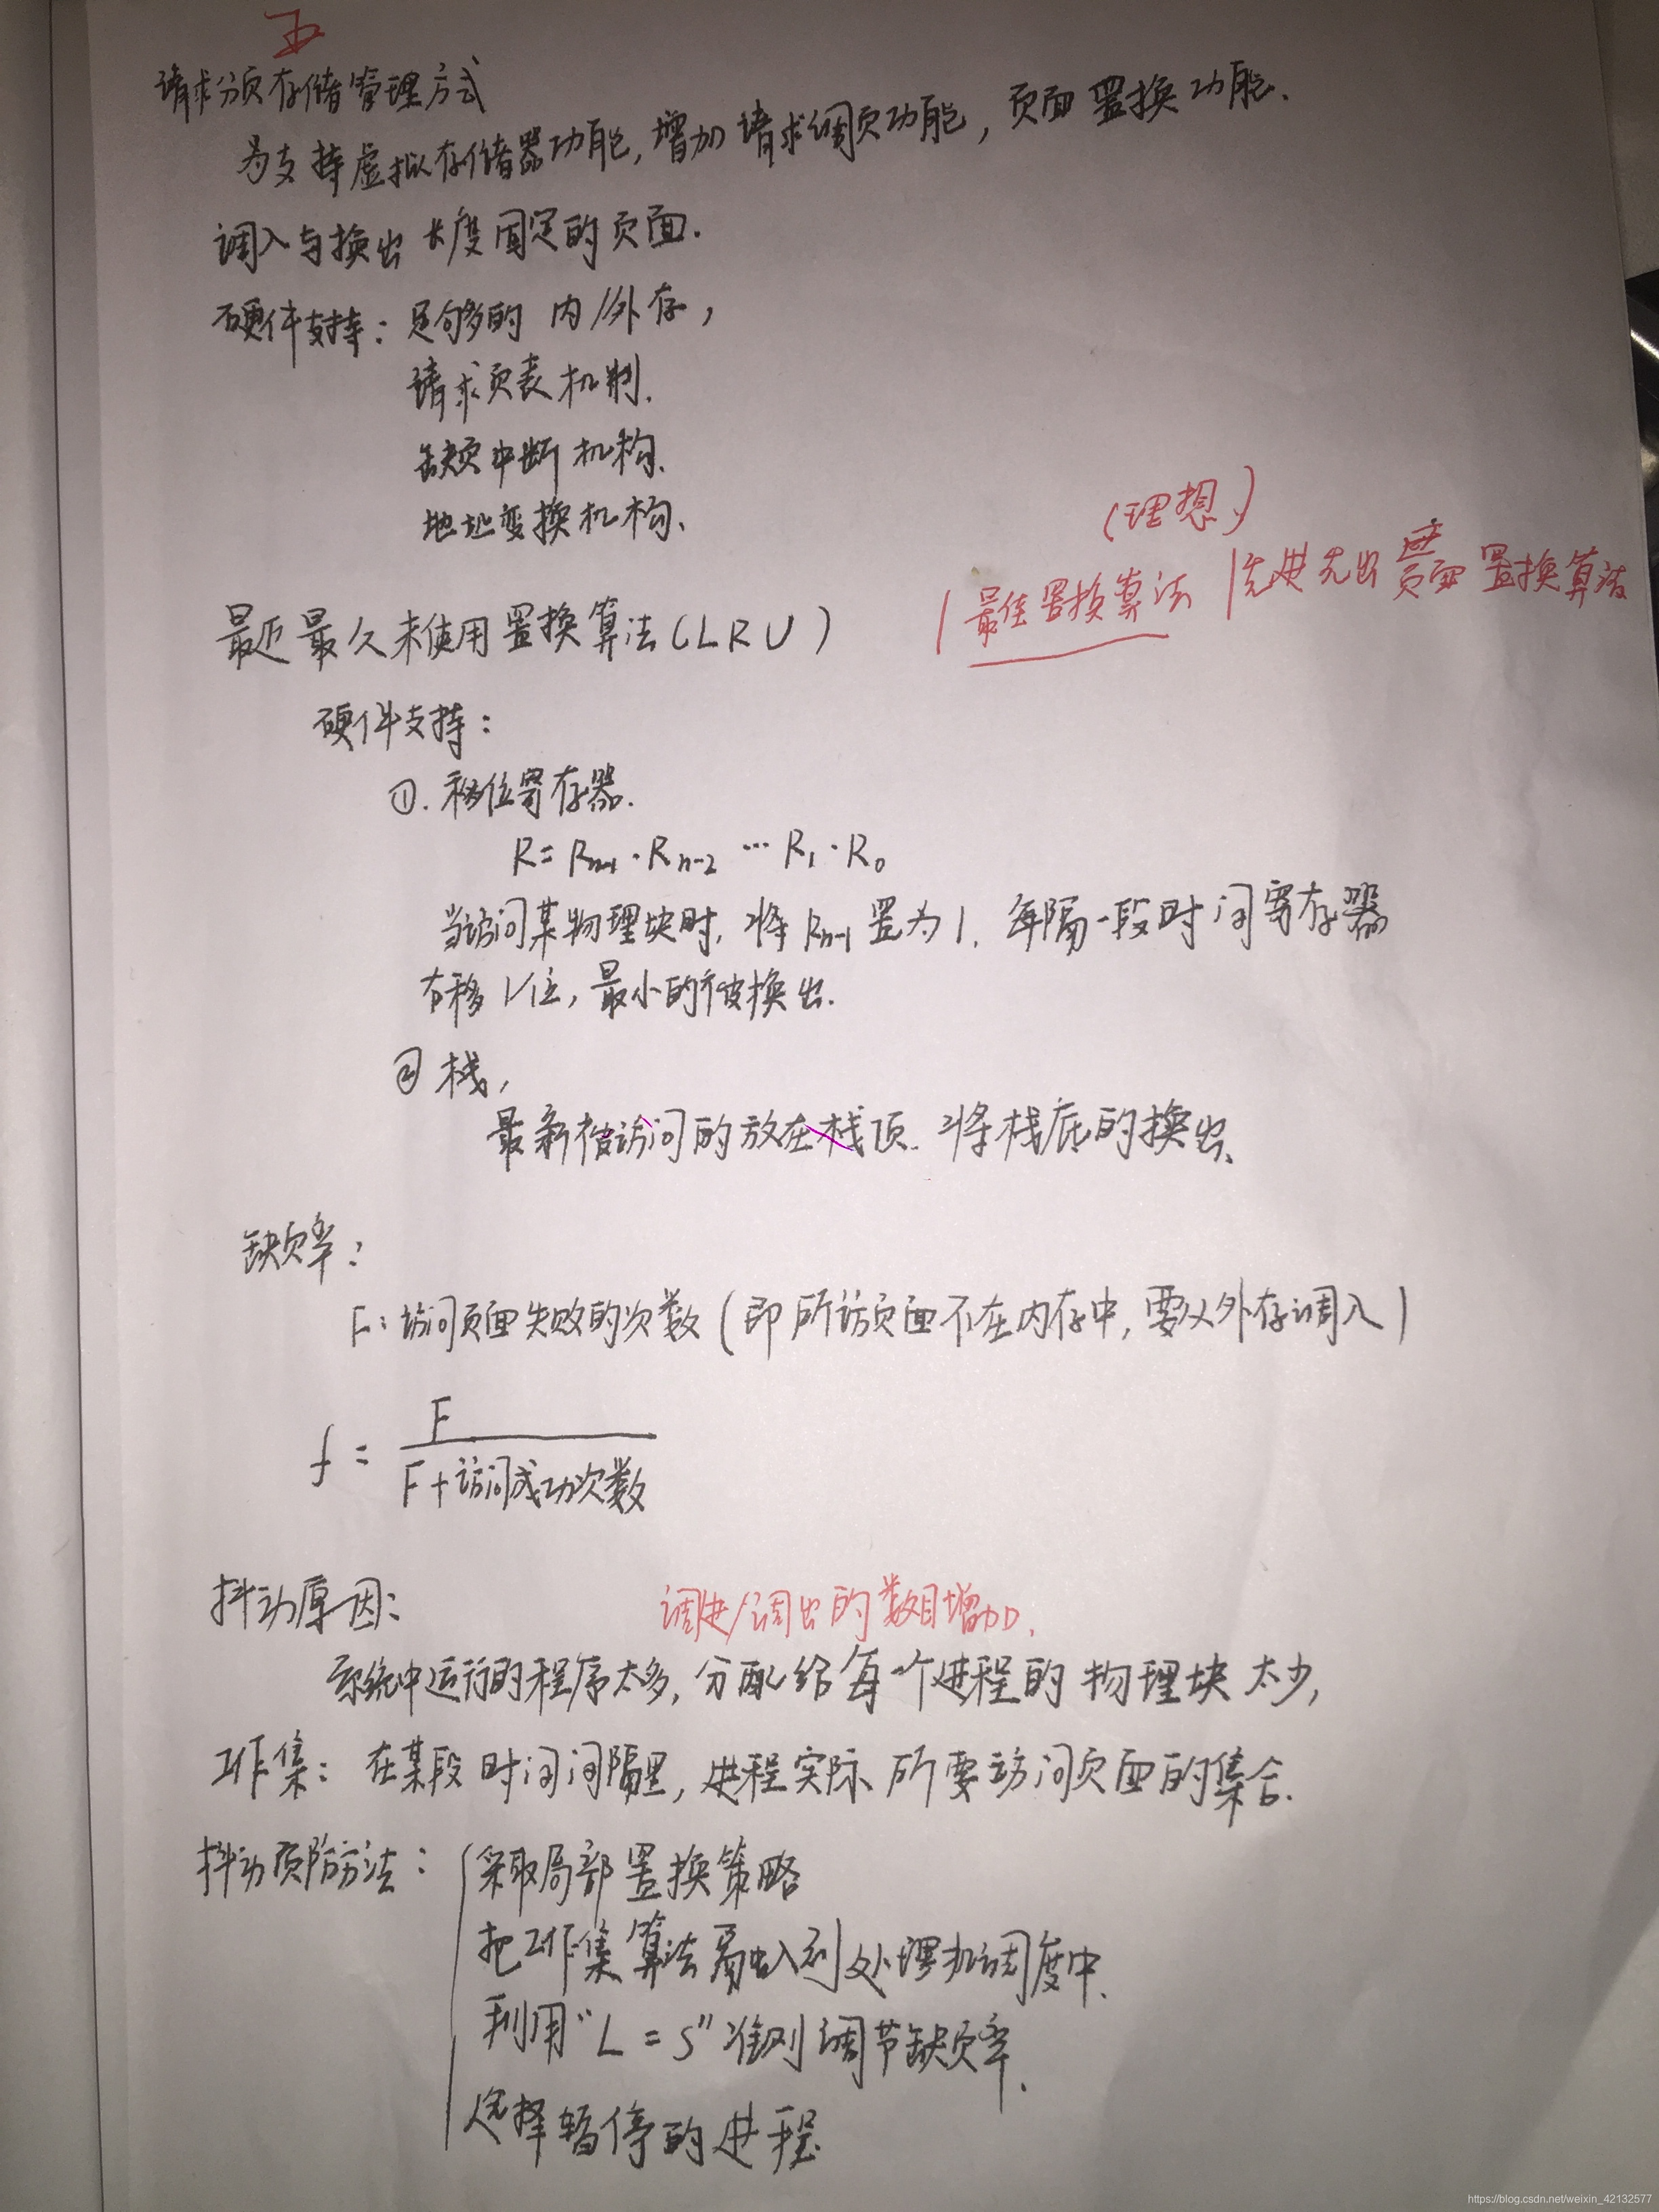 五
请求分页存储管理方式
为支持虚拟存储器功能,增加请求调页功能,页面置换功能.
调入与换出长度固定的页面.
硬件支持:足够的 内/外存,
请求页表机制.
缺页中断机构.
地址变换机构.
(理想)
最近最久未使用置换算法(LRU) |最佳置换算法 |先进先出页面置换算法
硬件支持:
①.移位寄存器.
R=Rn-1·Rn-2 ··· R1·R0
当访问某物理块时,将Rn-1置为1.每隔一段时间寄存器
右移1位,最小的被换出.
②栈,
最新被访问的放在栈顶.将栈底的换出.
缺页率:
F:访问页面失败的次数(即所访页面不在内存中,要从外存调入)
f = F / F+访问成功次数
抖动原因:
调进/调出的数目增加.
系统中运行的程序太多,分配给每个进程的物理块太少,
工作集:在某段时间间隔里,进程实际所要访问页面的集合.
抖动预防方法:采取局部置换策略
把工作集算法融入到处理机调度中.
利用“L=S”准则调节缺页率.
选择暂停的进程.
https://blog.csdn.net/weixin_42132577